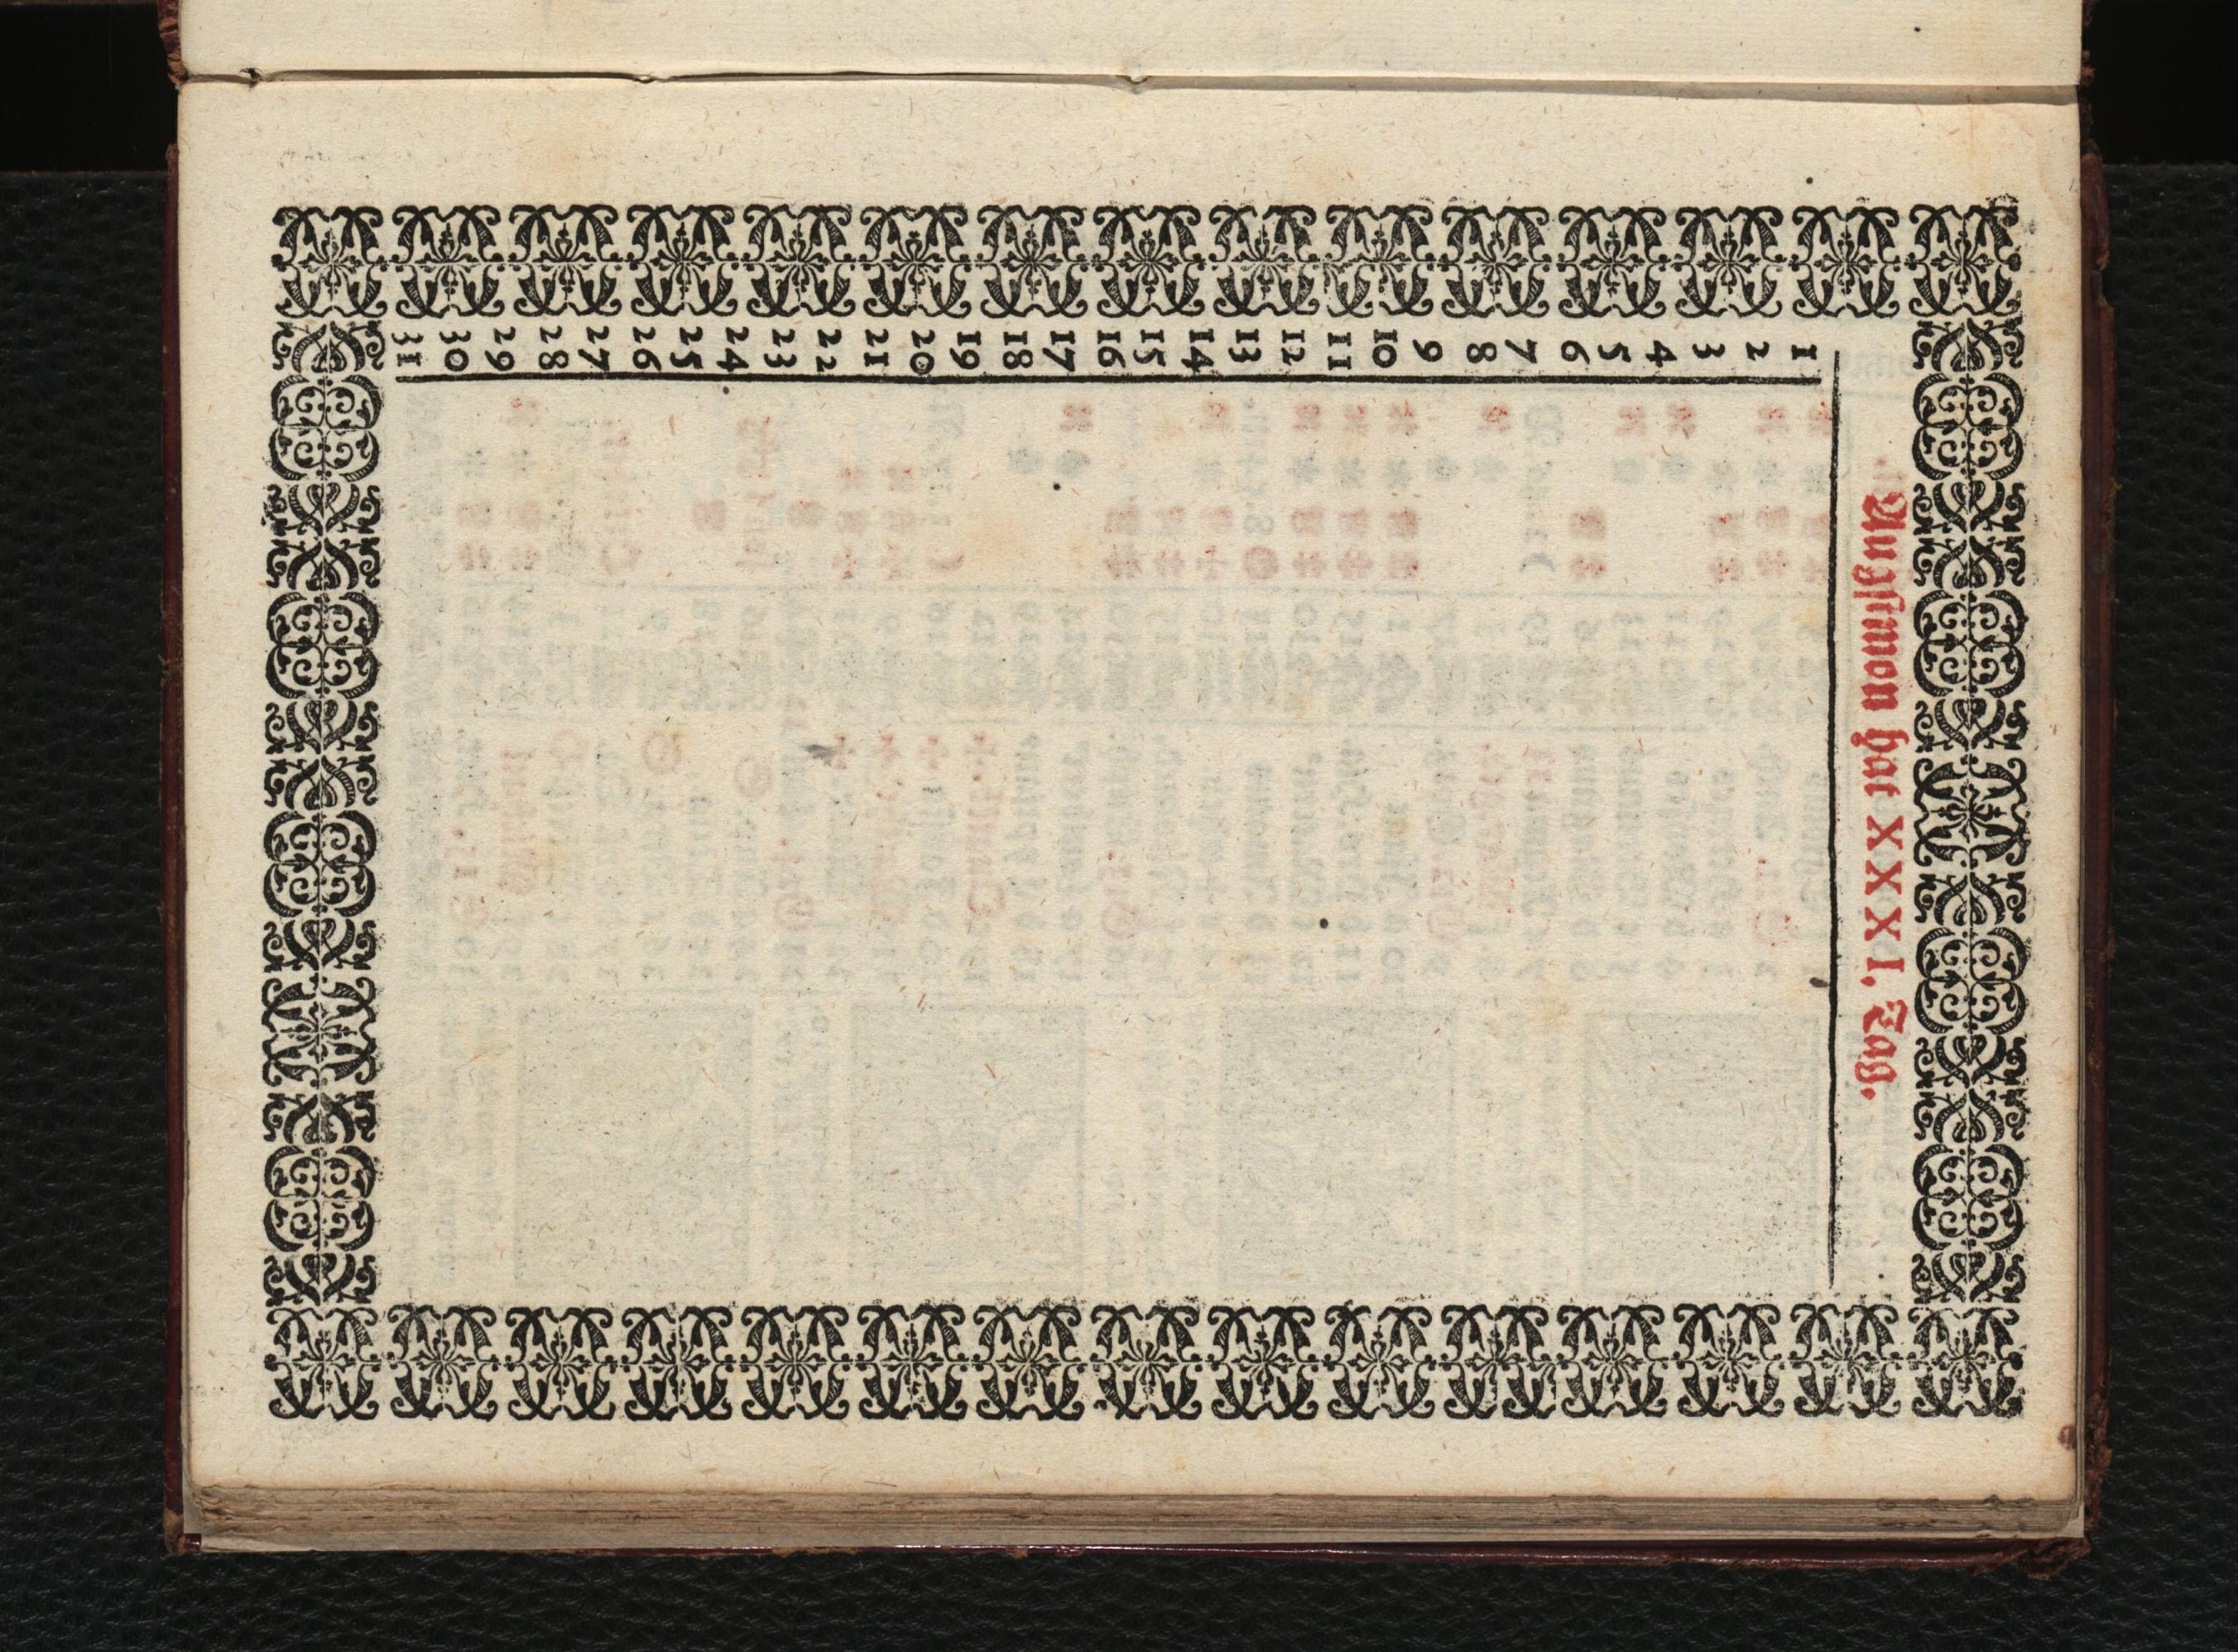 Augſtmon hat XXXI. Tag.
1
2
3
4
5
6
7
8
9
10
11
12
13
14
15
16
17
18
19
20
21
22
23
24
25
26
27
28
29
30
31